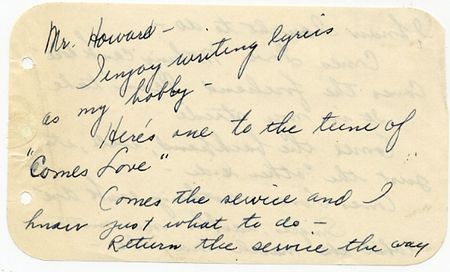 Mr. Howard -
I enjoy writing lyrics
as my hobby -
Here's one to the tune of
"Comes Love"
Comes the service and I
know just what to do -
Return the service the way